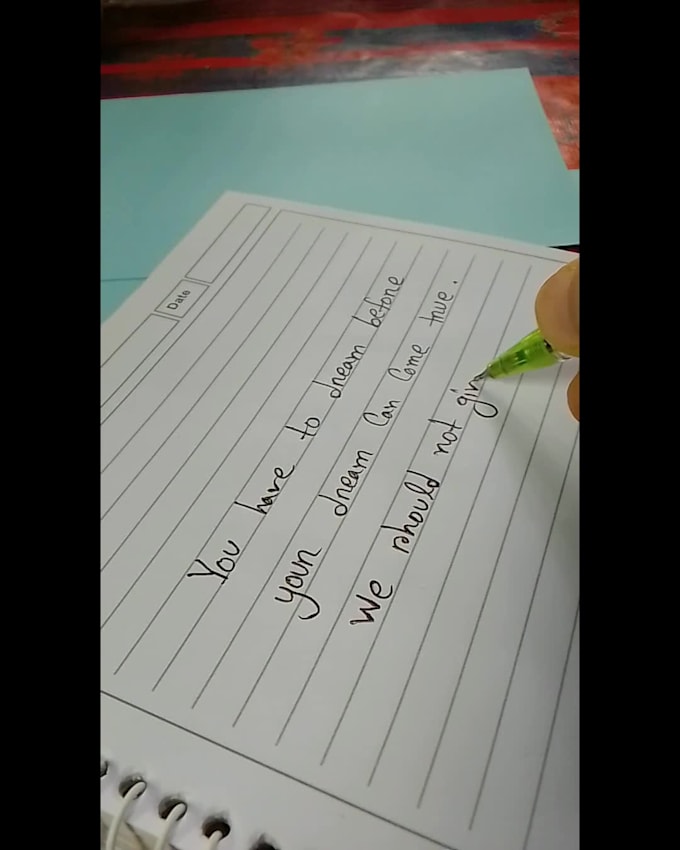 Date
You have to dream before
your dream can come true.
We should not giv